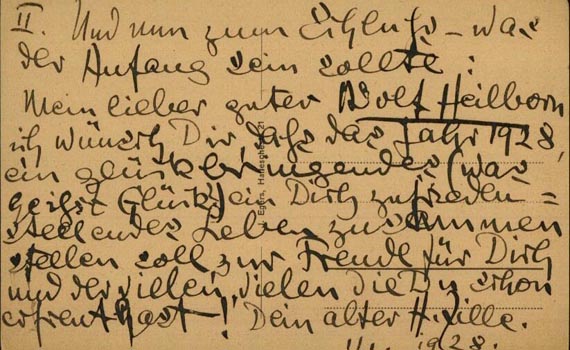 II. Und nun zum Schluss – was
der Anfang sein sollte:
Mein lieber guter Adolf Heilborn
ich wünsch Dir, dass das Jahr 1928,
ein glückbringendes (was
heißt Glück) ein Dich zufrieden=
stellendes Leben zusammen
stellen soll zur Freude für Dich
und der vielen, vielen die Du schon
erfreut hast! Dein alter H. Zille.
1928.